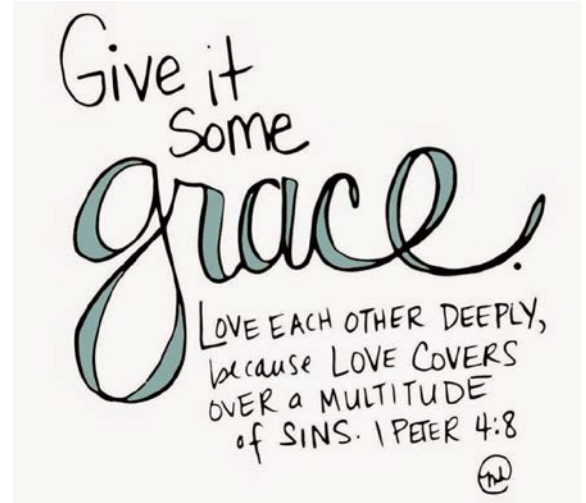 Give it
some
grace.
LOVE EACH OTHER DEEPLY,
because LOVE COVERS
OVER a MULTITUDE
of SINS. 1 PETER 4:8